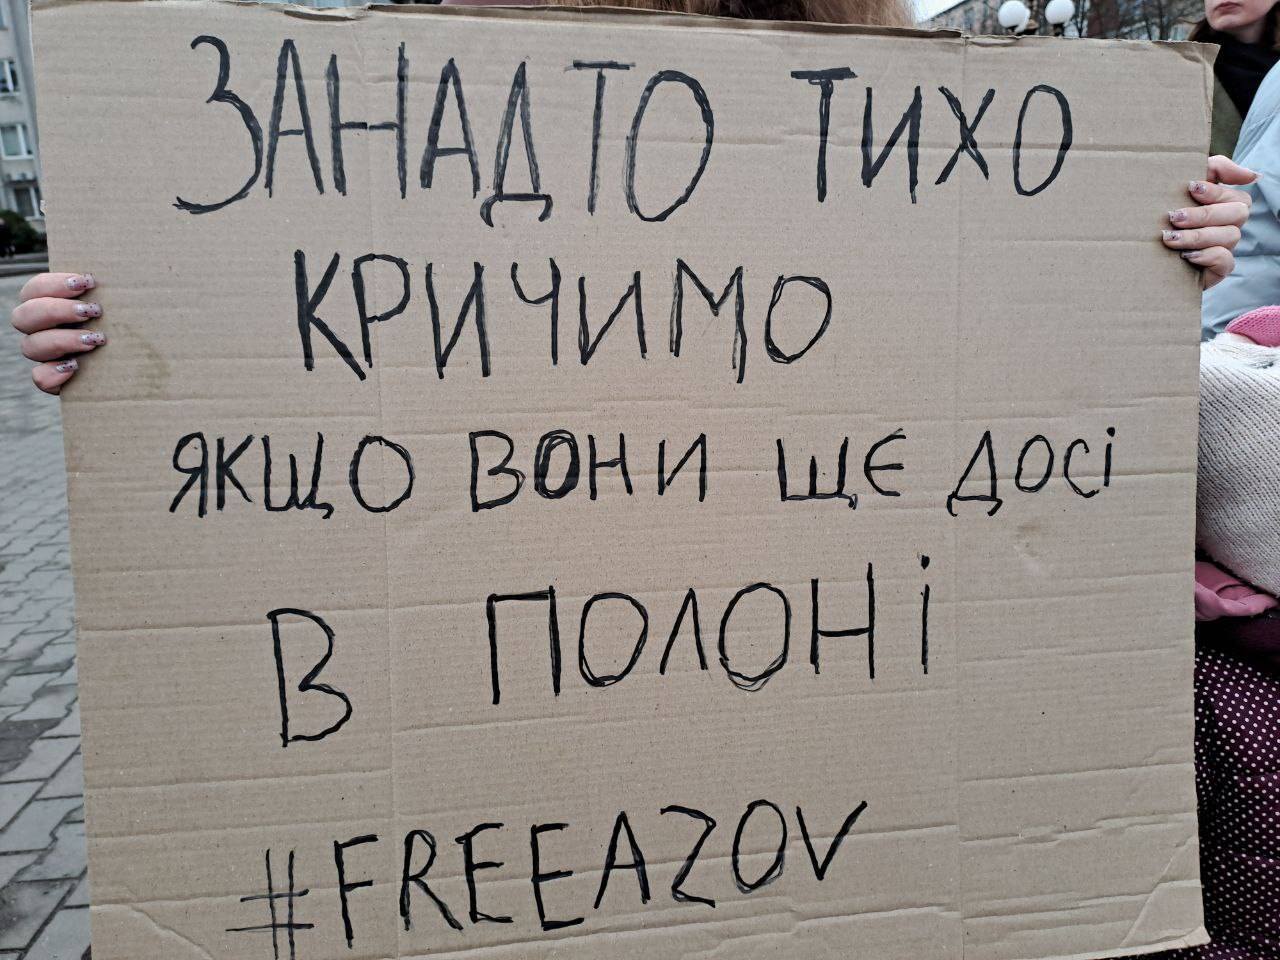 ЗАНАДТО ТИХО
КРИЧИМО
ЯКЩО ВОНИ ЩЕ ДОСІ
В ПОЛОНІ
#FREEAZOV